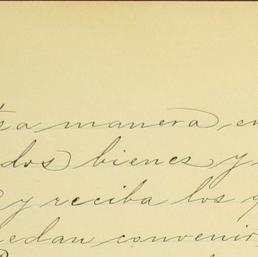 sa manera, en
dos bienes y
y reciba los q
edan convenir